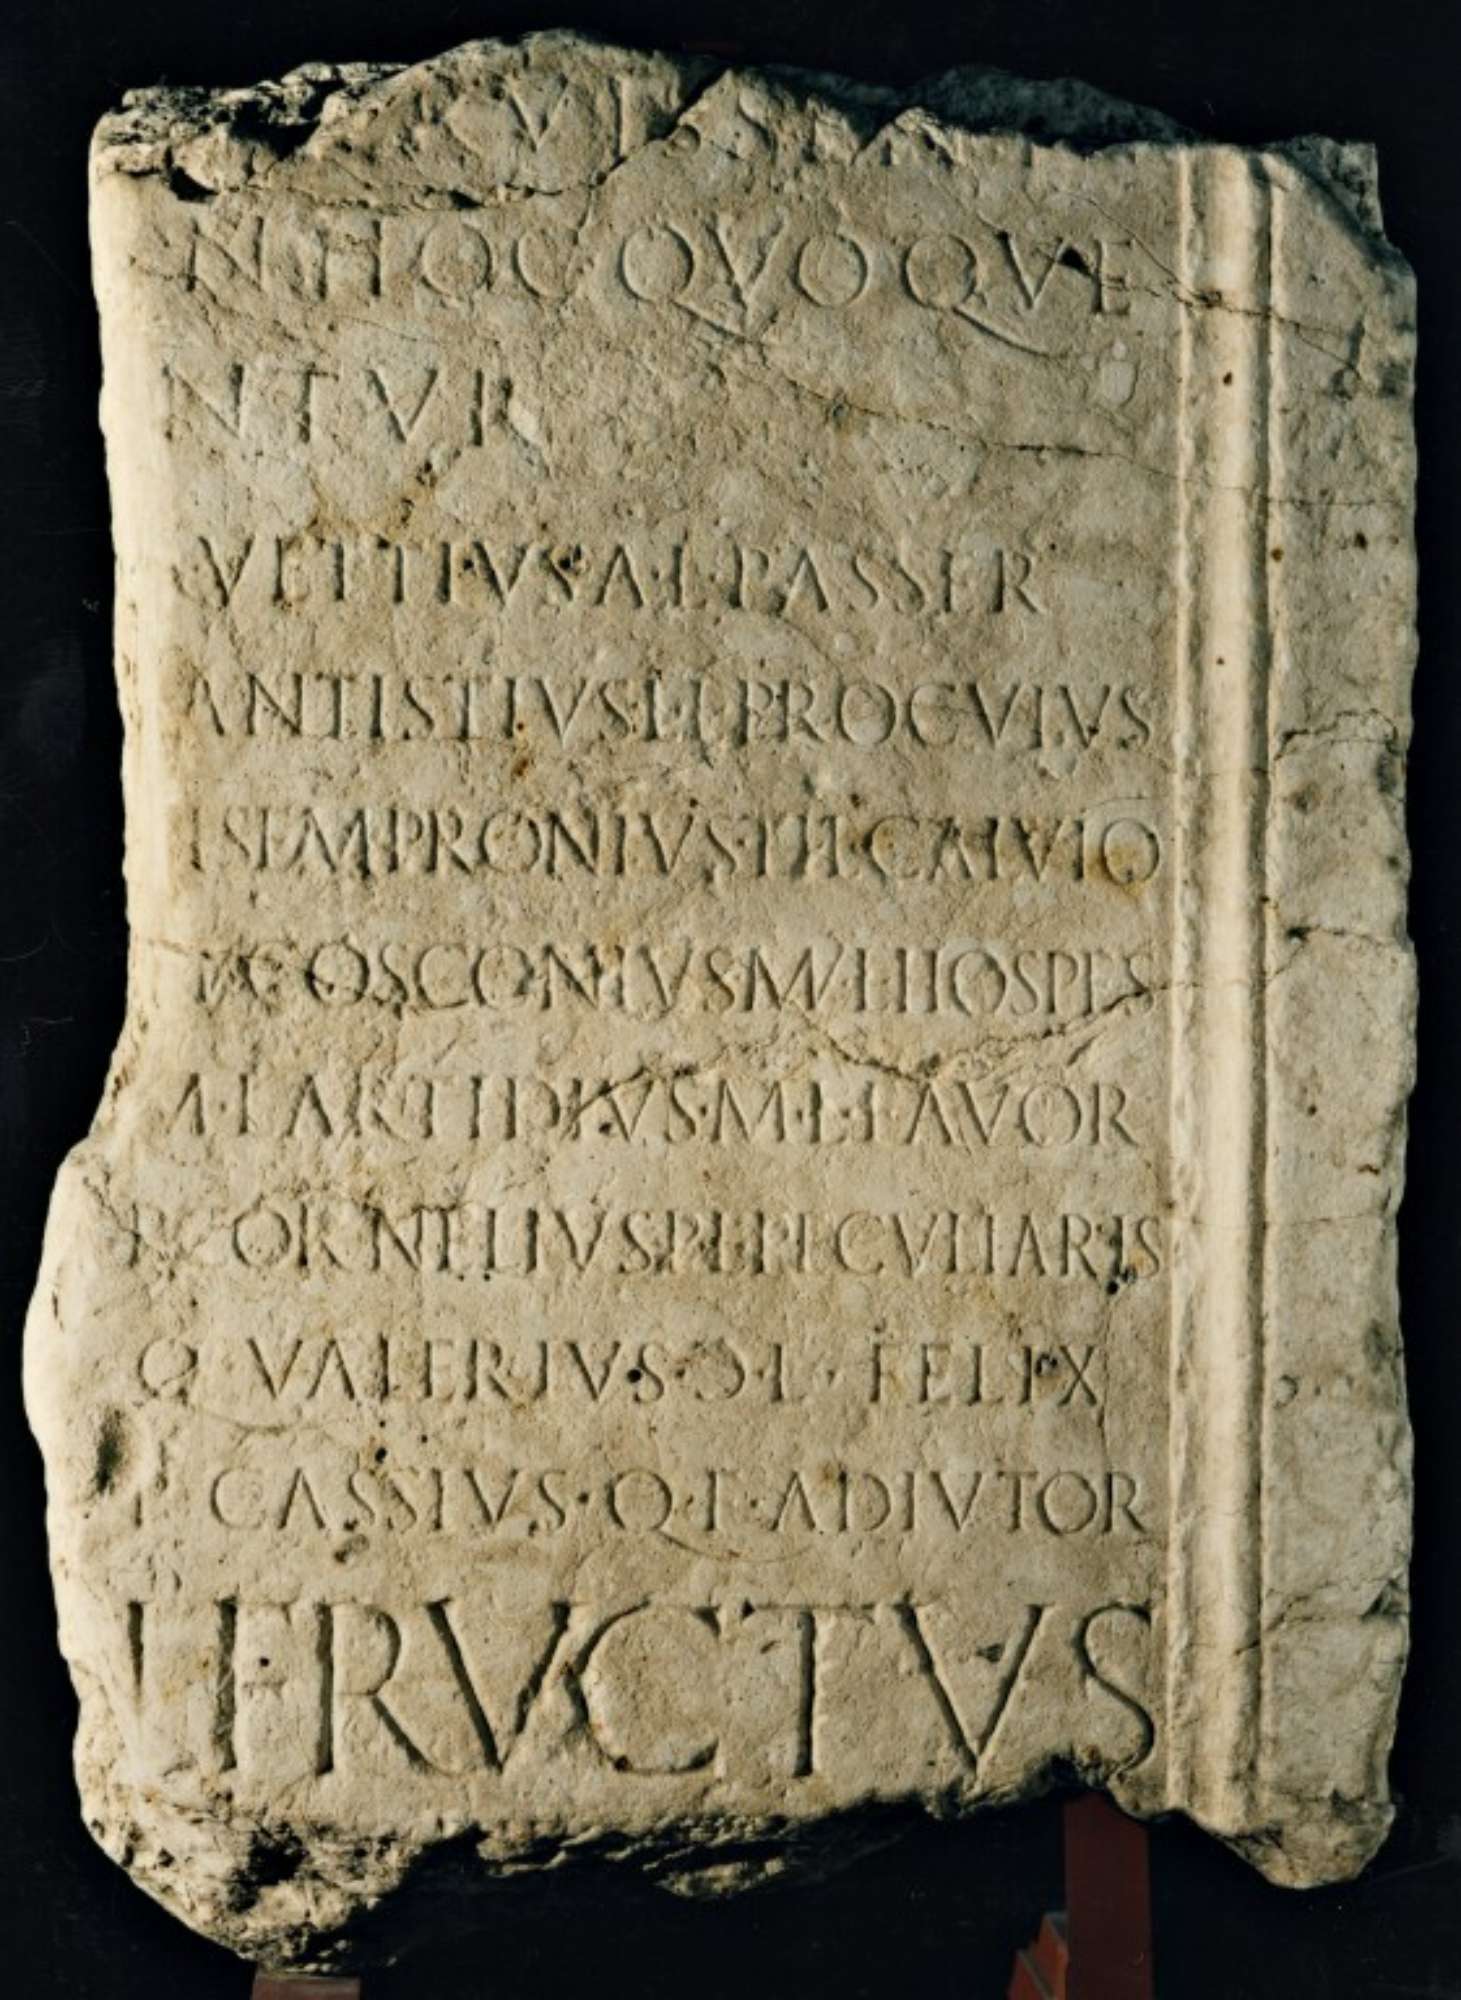 N HOC QVOQVE
NTVR
VETTIVS A·L·PASSER
ANTISTIVS·L·L·PROCVLVS
L SEMPRONIVS·L·L·CALVIO
M COSCONIVS M·L·HOSPES
M·LARTIDIVS·M·L·FAVOR
P·CORNELIVS·P·L·PECVLIARIS
Q·VALERIVS·Ɔ·L·FELIX
CASSIVS·Q·L·ADIVTOR
FRVCTVS